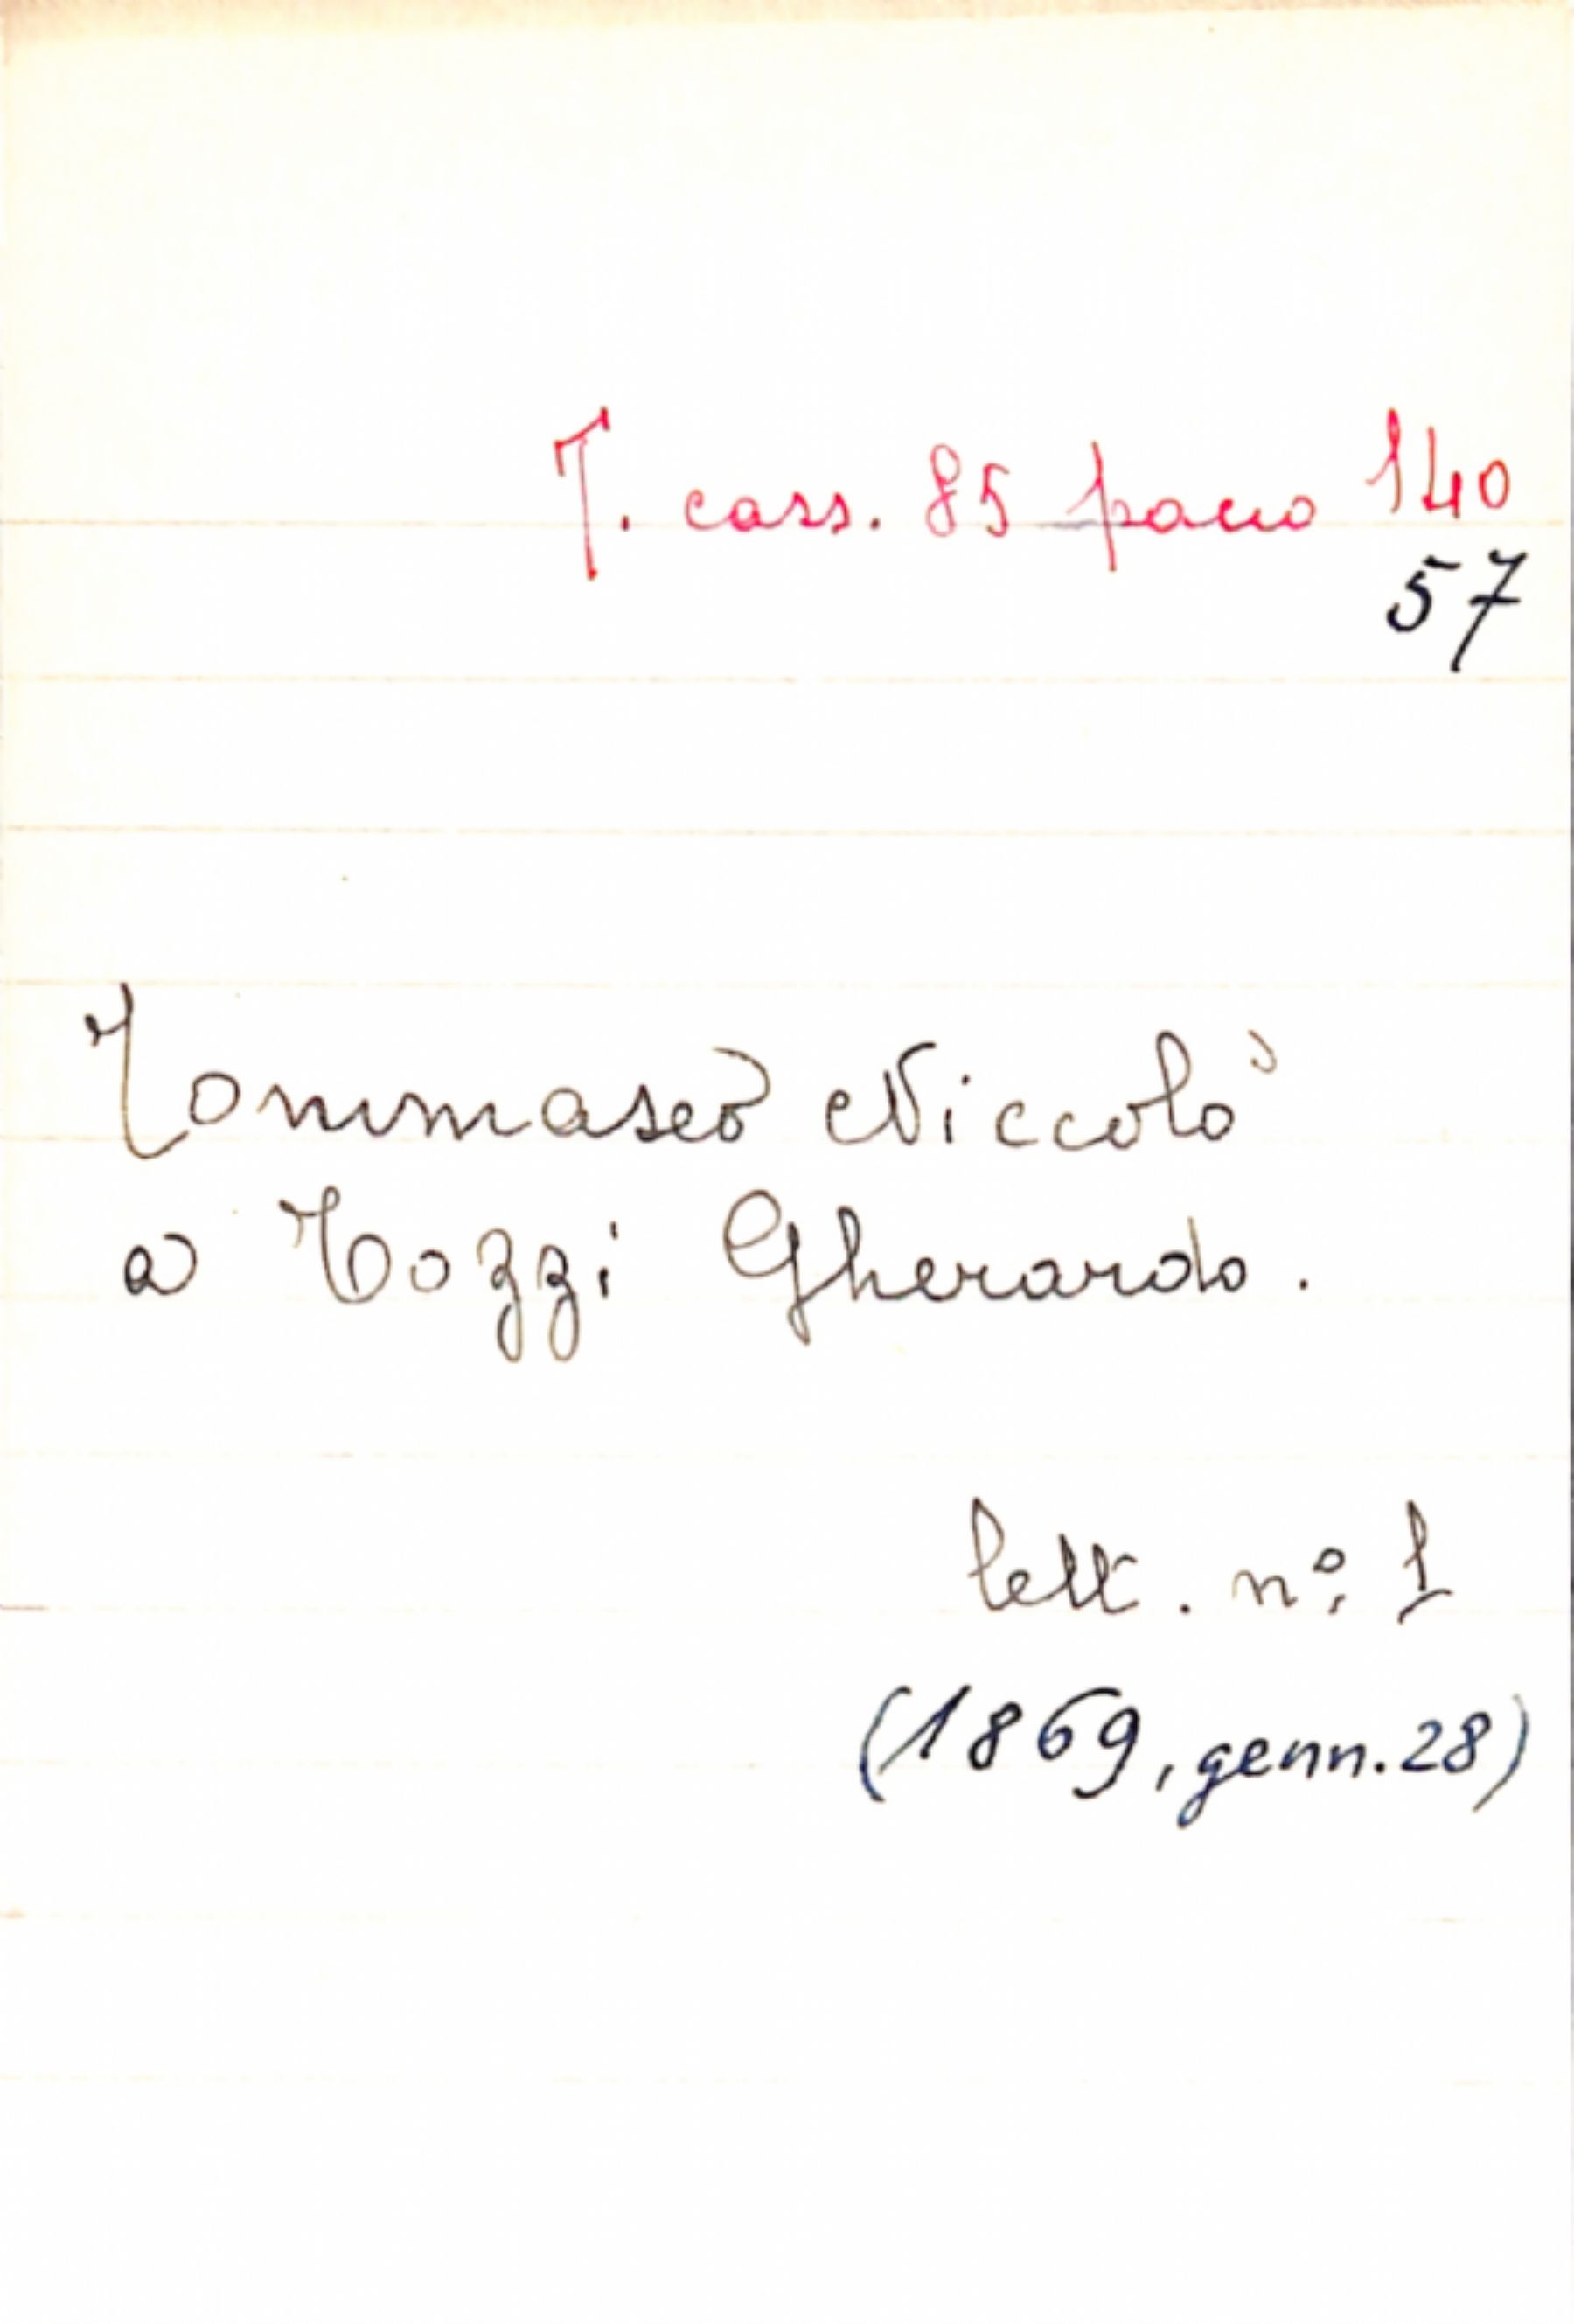 T. cass. 85 pacco 140
57
Tommaseo Niccolò
a Tozzi Gherardo.
lett. nº. 1
(1869, genn. 28)